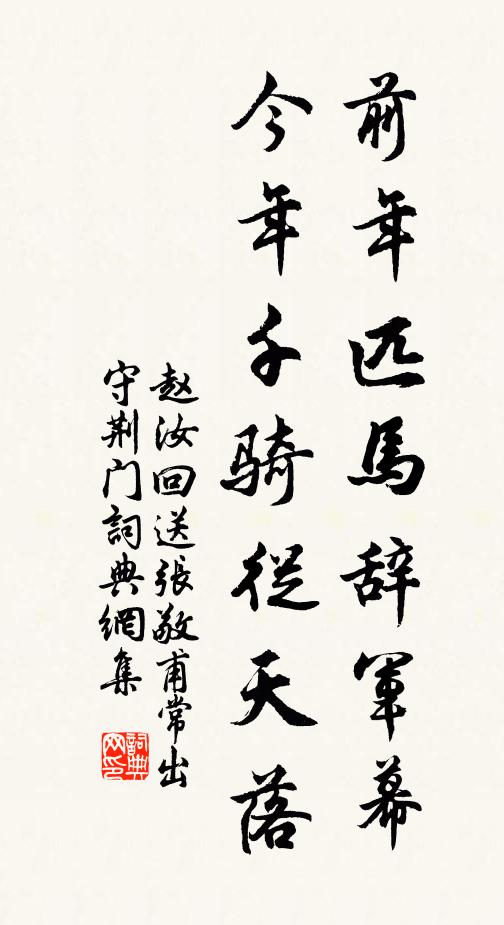 前年匹馬辞軍幕
今年千騎從天落
赵汝回送張敬甫常出
守荆门詞典網集
詞典網印